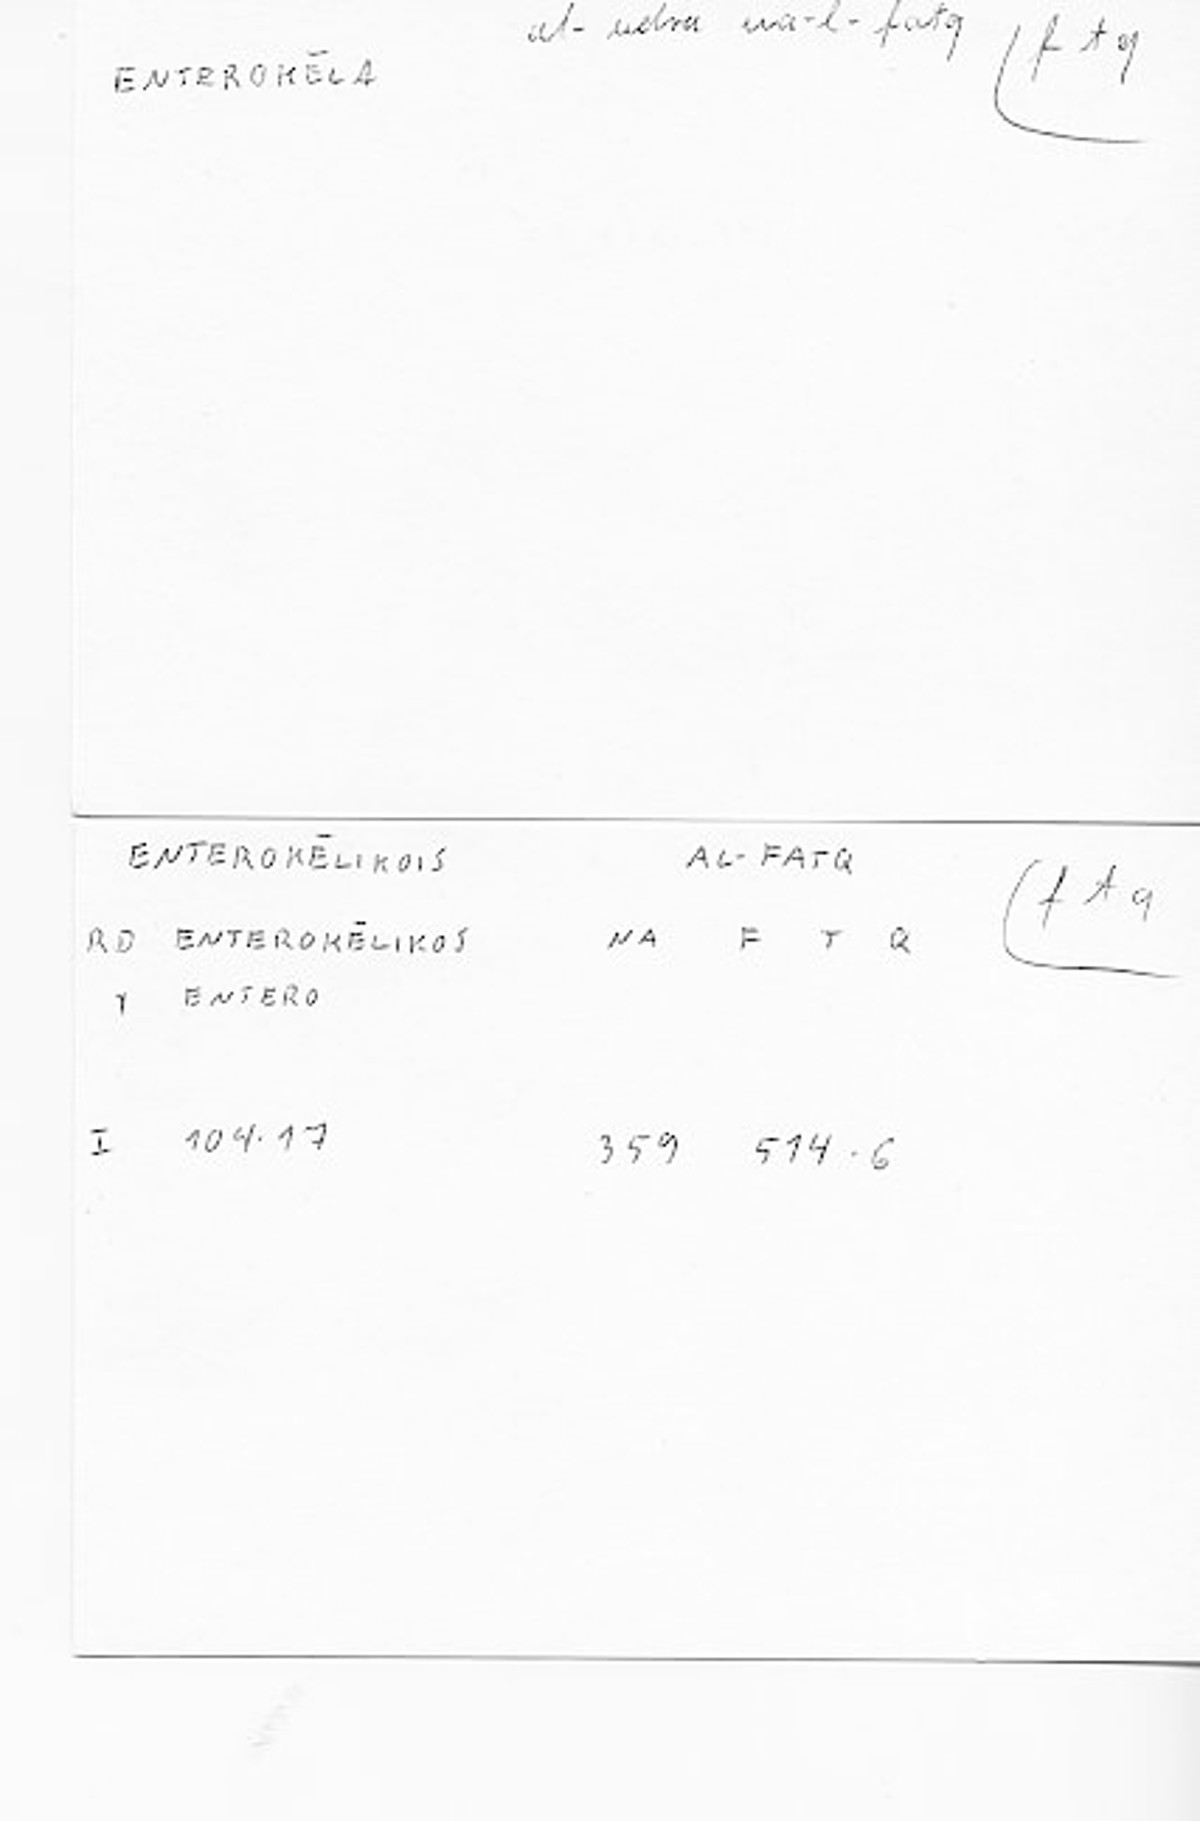 al- udra wa-l-fatq (f t q
ENTEROKĒLA
ENTEROKĒLIKOIS AL-FATQ (f t q
RD ENTEROKĒLIKOS NA F T Q
Y ENTERO
I 104.17 359 514.6